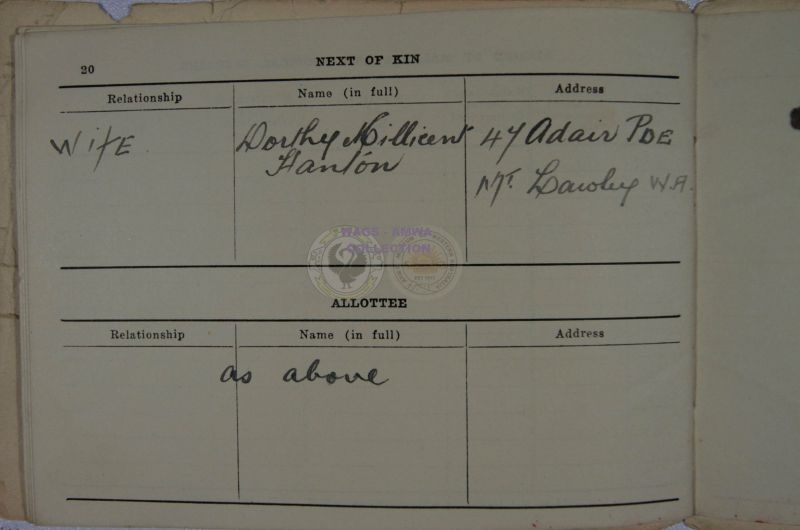 20
NEXT OF KIN
Relationship Name (in full) Address
WifE. Dorthy Millicent 47 Adair PDE
Hanlon Mt Lawley W.A.
WAGS - AMWA
COLLECTION
ALLOTTEE
Relationship Name (in full) Address
as above